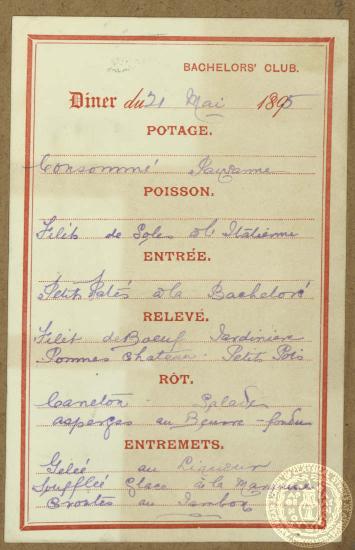 BACHELORS' CLUB.
Dîner du 21 Mai 1895
POTAGE.
Consommé Paysanne
POISSON.
Filit de Soles à l'Italienne
ENTRÉE.
Petit Patés à la Bachelors'
RELEVÉ.
Filit de Boeuf Jardiniere
Pommes Chateau. Petit Pois
RÔT.
Caneton. Salade
asperges au Beurre fondu
ENTREMETS.
Gelée au Liqueur
Soufflée Glace à la
Croutes au Jambon